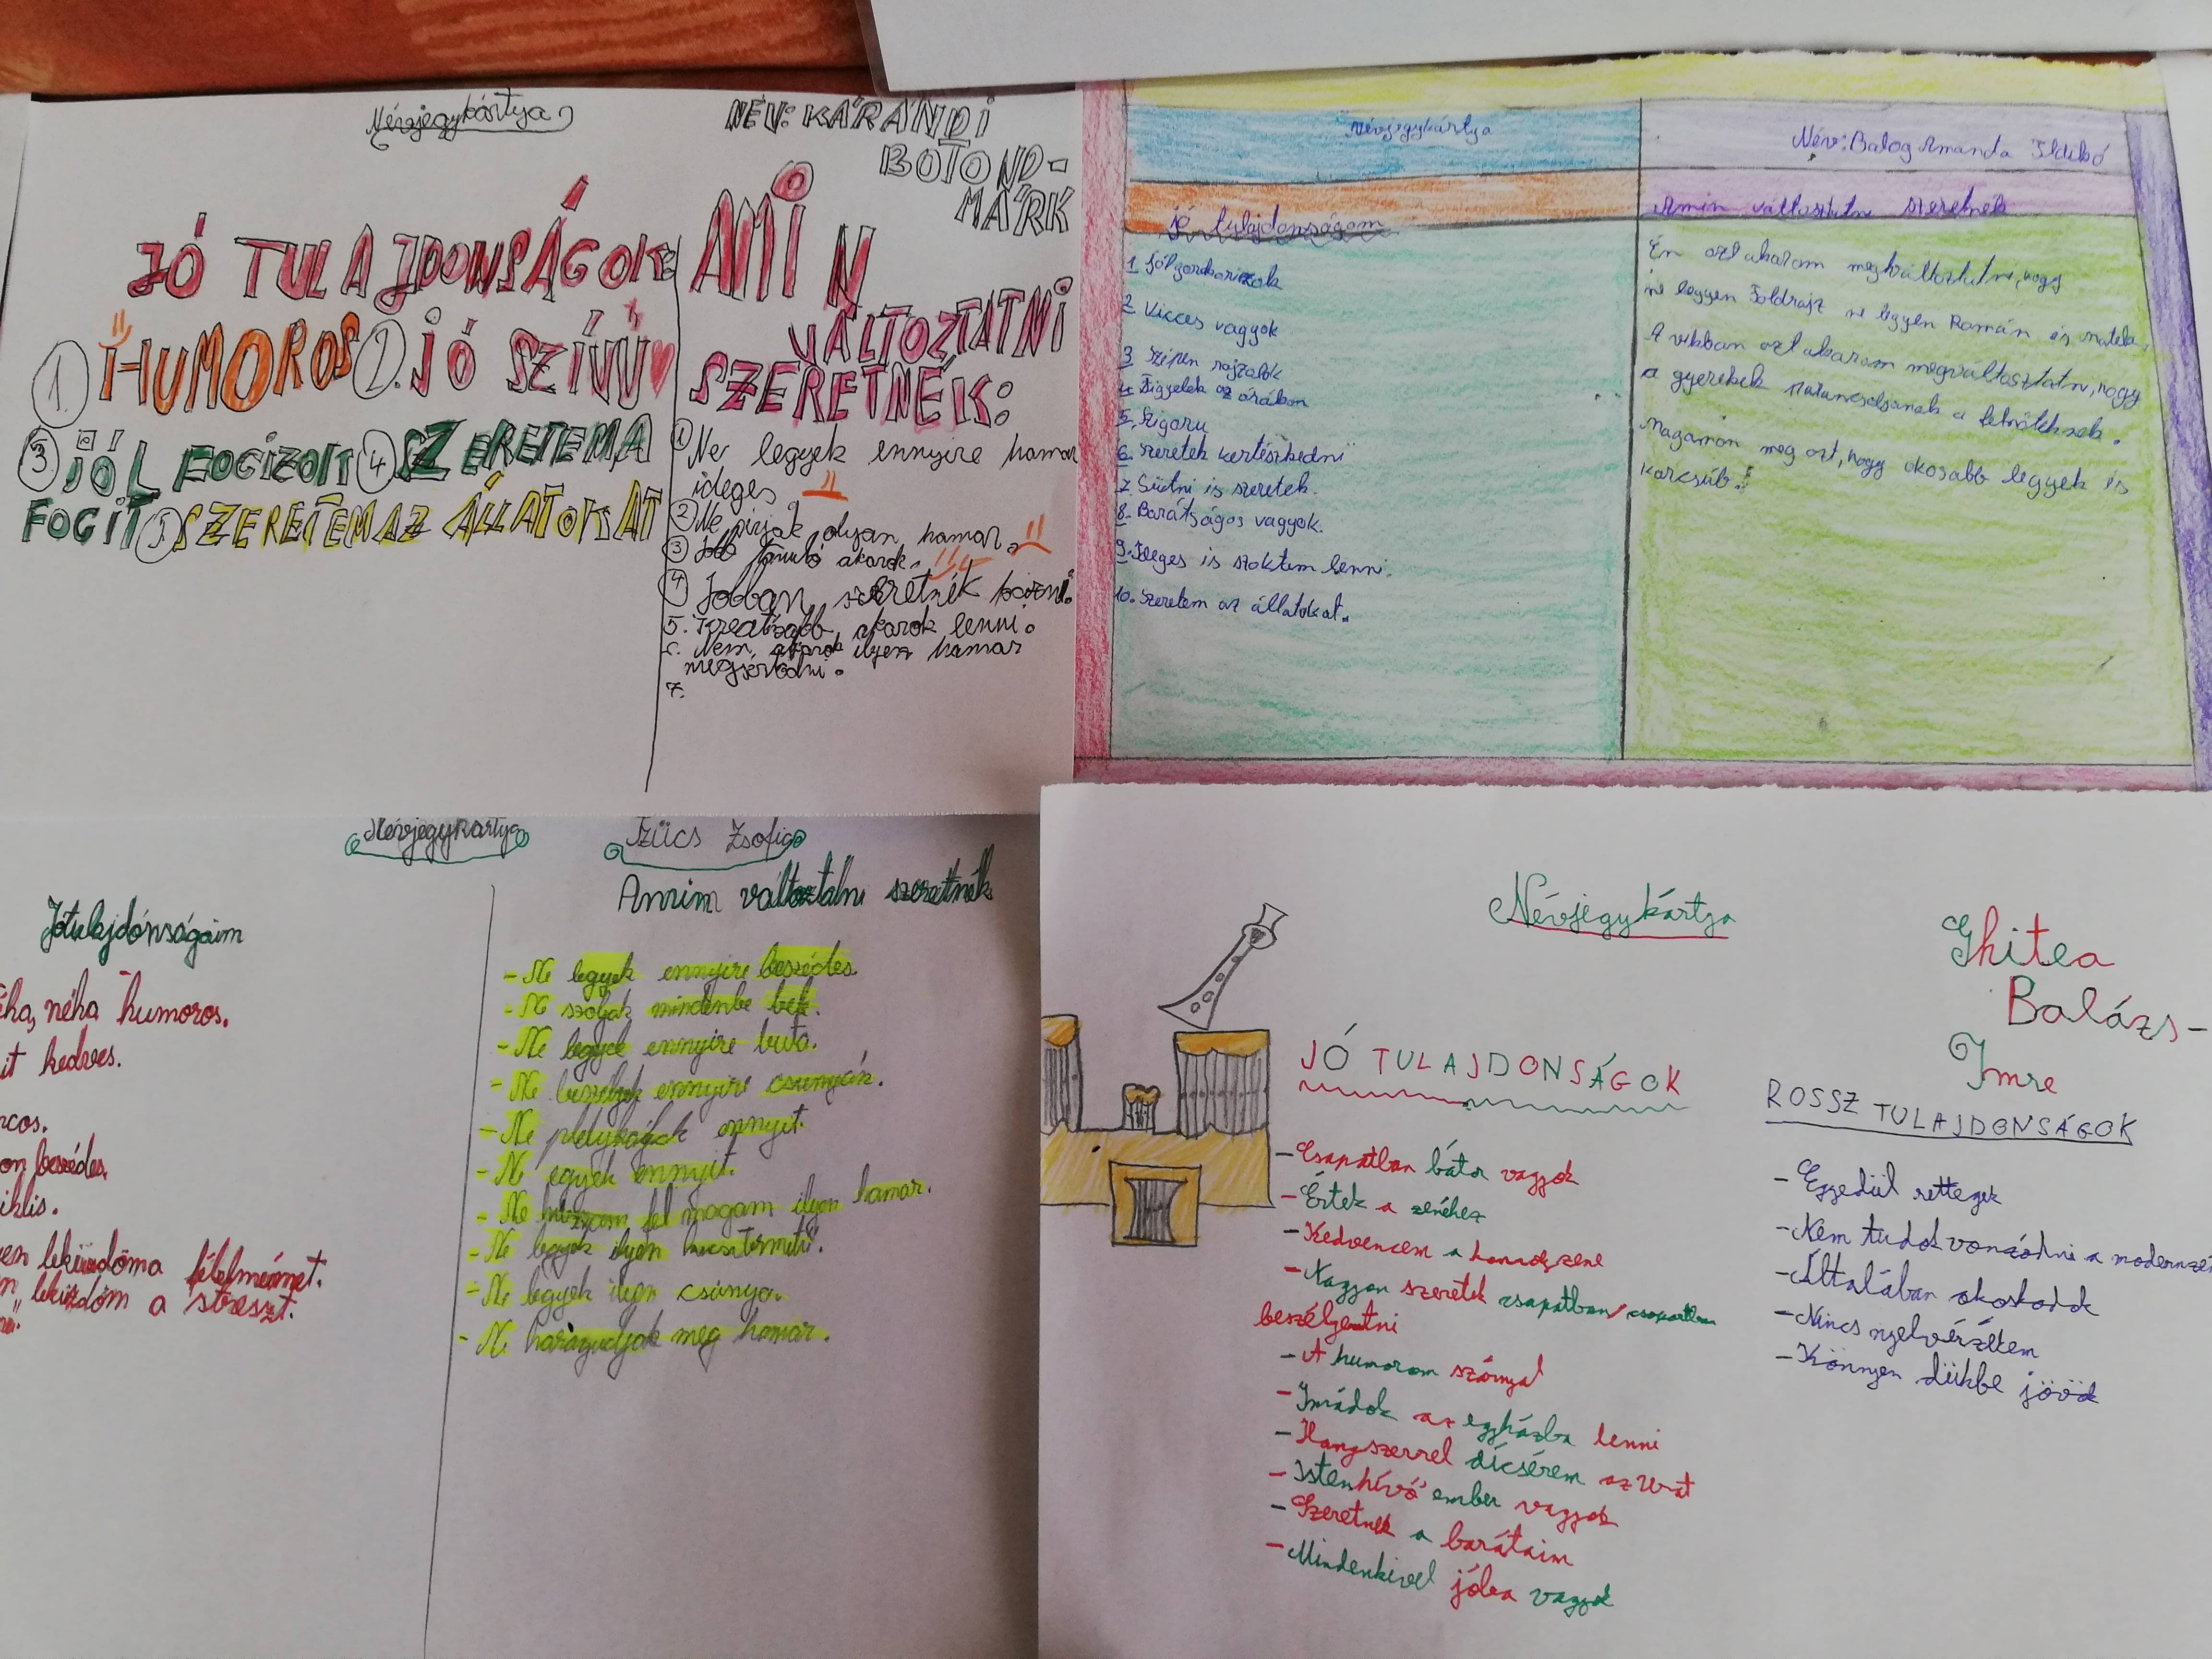 Névjegykártya
NÉV: KÁRÁNDI
BOTOND-
MÁRK
JÓ TULAJDONSÁGOK
1. HUMOROS 2. JÓ SZÍVŰ
3 JÓL FOCIZOK 4 SZERETEM A
FOCIT 5 SZERETEM AZ ÁLLATOKAT
AMIN
VÁLTOZTATNI
SZERETNÉK:
1 Ne legyek ennyire hamar
ideges
2 Ne sírjak olyan hamar.
3 Jobb tanuló akarok.
4 Jobban szeretnék
5. akarok lenni.
6. Nem akarok ilyen hamar
megsértődni.
7.
Névjegykártya
Név: Balog Amanda Ildikó
jó tulajdonságom
1. Jól gordkorizok
2. Vicces vagyok
3. Szépen rajzolok
4. Figyelek az órákon
5. Szigoru
6. Szeretek kertészkedni
7. Sütni is szeretek.
8. Barátságos vagyok.
9. Ideges is szoktam lenni.
10. Szeretem az állatokat.
Amin változtatni szeretnék
Én azt akarom megváltoztatni, hogy
ne legyen Földrajz ne legyen Román és matek.
A azt akarom megváltosztatni, hogy
a gyerekek a felnőteknek.
Magamon meg azt, hogy okosabb legyek és
karcsúb.
Névjegykártya
Szűcs Zsófia
Jótulajdónságaim
néha humoros.
it kedves.
rcos.
on beszédes.
iklis.
en leküzdöma félelmeimet.
leküzdöm a streszt.
Amin változtatni szeretnék
- Ne legyek ennyire beszédes
- Ne szóljak mindenbe bele.
- Ne legyek ennyire buta.
- Ne beszéljek ennyire csúnyán.
- Ne pletykáljak ennyit.
- N egyek ennyit.
- Ne húzzam fel magam ilyen hamar.
- Ne legyek ilyen
- Ne legyek ilyen csúnya.
- N haragudjak meg hamar.
Névjegykártya
Ghitea
Balázs-
Imre
JÓ TULAJDONSÁGOK
- Csapatban bátor vagyok
- Értek a zenéhez
- Kedvencem a
- Nagyon szeretek csapatban/csoportban
beszélgetni
- A humorom szárnyal
- Imádok az egyházba lenni
- Hangszerrel dícsérem az Urat
- Istenhívő ember vagyok
- Szeretnek a barátaim
- Mindenkivel jóba vagyok
ROSSZ TULAJDONSÁGOK
- Egyedül rettegek
- Nem tudok vonzódni a
- Általában okoskodok
- Nincs nyelvérzékem
- Könnyen dühbe jövök